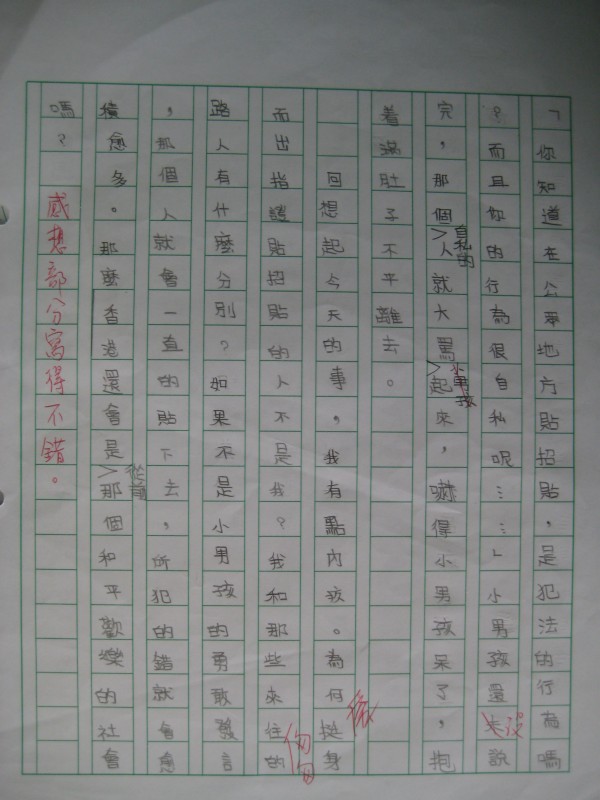 「你知道在公眾地方貼招貼，是犯法的行為嗎
？而且你的行為很自私呢……」小男孩還未沒說
完，那個自私的人就大罵小男孩起來，嚇得小男孩呆了，抱
着滿肚子不平離去。
回想起今天的事，我有點內疚。為何挺身
而出指證貼招貼的人不是我？我和那些來往的
路人有什麼分別？如果不是小男孩的勇敢發言
，那個人就會一直的貼下去，所犯的錯就會愈
積愈多。那麼香港還會是從前那個和平歡樂的社會
嗎？
感想部分寫得不錯。